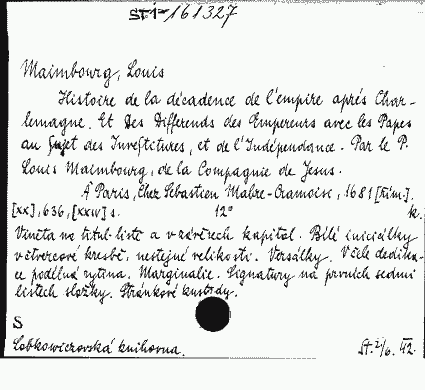 ST 1-161327
Maimbourg, Louis
Histoire de la décadence de l'empire aprés Char-
lemagne. Et Des Differends des Empereurs avec les Papes
au Sujet des Investitures, et de l'Indépendance. Par le P.
Louis Maimbourg, de la Compagnie de Jesus.
A Paris, Chez Sébastien Mabre-Cramoise, 1681 [řím.].
[xx], 636, [xxiv] s. 12° k.
Viněta na titul. listě a v závěrech kapitol. Bílé iniciálky
v čtvercové kresbě, nestejné velikosti. Versálky. V čele dedika-
ce podélná rytina. Marginalie. Signatury na prvních sedmi
listech složky. Stránkové kustody.
S
Lobkowiczovská knihovna. St. 2/6. 42.